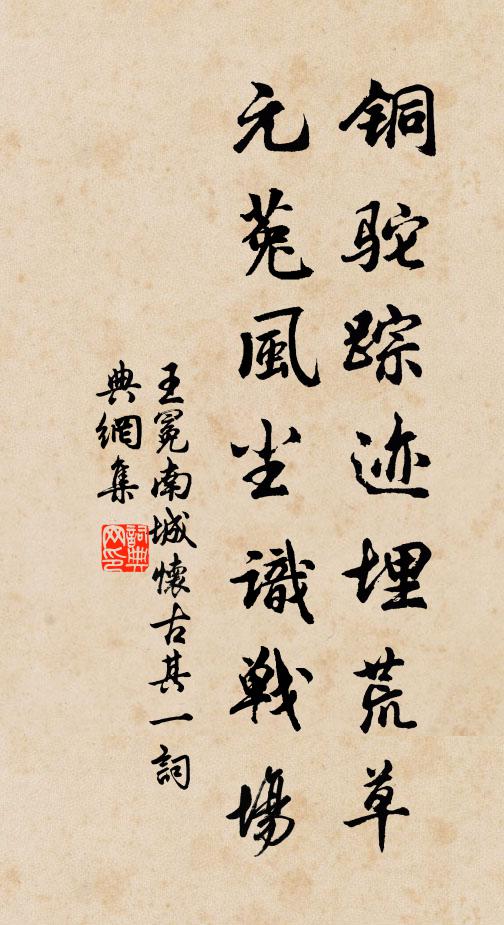 铜驼踪迹埋荒草
元菟風尘識戰場
王冕南城懷古其一詞
典網集
詞典
网印